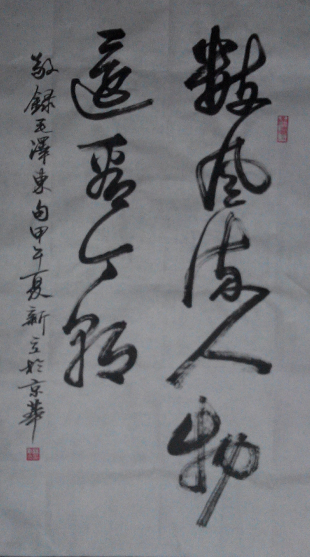 數風流人物
還看今朝
敬錄毛澤東句甲午夏新立於京華